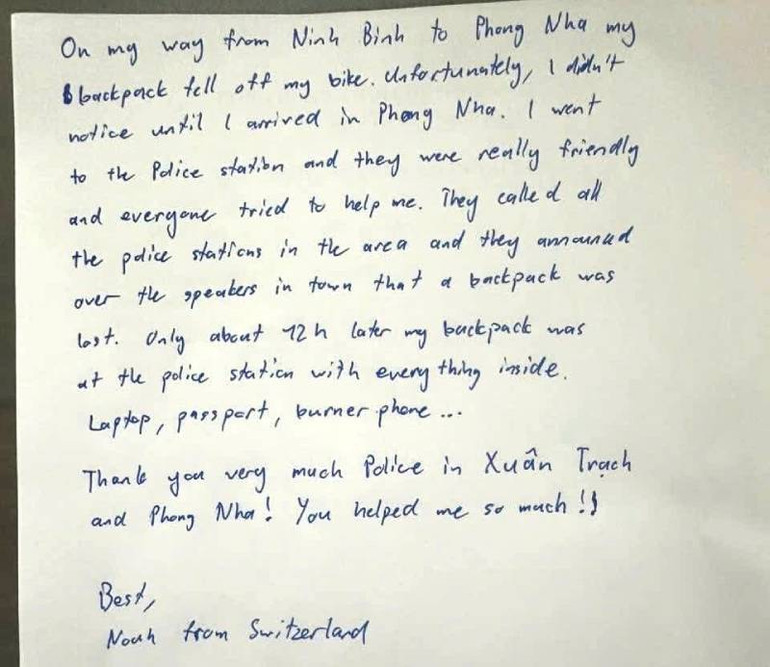 On my way from Ninh Binh to Phong Nha my
backpack fell off my bike. Unfortunately, I didn't
notice until I arrived in Phong Nha. I went
to the Police station and they were really friendly
and everyone tried to help me. They called all
the police stations in the area and they announced
over the speakers in town that a backpack was
lost. Only about 12h later my backpack was
at the police station with everything inside.
Laptop, passport, burner phone ...
Thank you very much Police in Xuân Trạch
and Phong Nha! You helped me so much!!
Best,
Noah from Switzerland